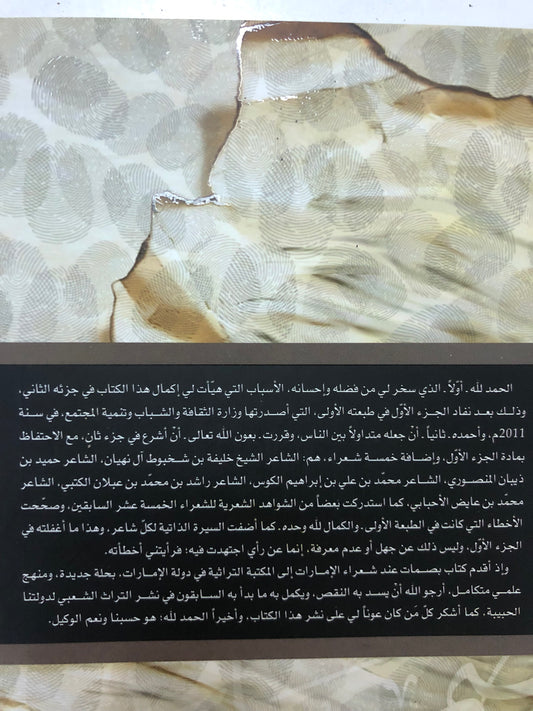 الحمد لله ـ أوّلاً ـ الذي سخر لي من فضله وإحسانه، الأسباب التي هيّأت لي إكمال هذا الكتاب في جزئه الثاني،
وذلك بعد نفاد الجزء الأوّل في طبعته الأولى، التي أصدرتها وزارة الثقافة والشباب وتنمية المجتمع، في سنة
2011م، وأحمده ـ ثانياً ـ أنْ جعله متداولاً بين الناس، وقررت ـ بعون الله تعالى ـ أنْ أشرع في جزء ثانٍ، مع الاحتفاظ
بمادة الجزء الأوّل، وإضافة خمسة شعراء، هم: الشاعر الشيخ خليفة بن شخبوط آل نهيان، الشاعر حميد بن
ذيبان المنصوري، الشاعر محمّد بن علي بن إبراهيم الكوس، الشاعر راشد بن محمّد بن عبلان الكتبي، الشاعر
محمّد بن عايض الأحبابي، كما استدركت بعضاً من الشواهد الشعرية للشعراء الخمسة عشر السابقين، وصحّحت
الأخطاء التي كانت في الطبعة الأولى ـ والكمال لله وحده ـ كما أضفت السيرة الذاتية لكلّ شاعر، وهذا ما أغفلته في
الجزء الأوّل، وليس ذلك عن جهل أو عدم معرفة، إنما عن رأي اجتهدت فيه: فرأيتني أخطأته.
وإذ أقدم كتاب بصمات عند شعراء الإمارات إلى المكتبة التراثية في دولة الإمارات، بحلة جديدة، ومنهج
علمي متكامل، أرجو الله أنْ يسد به النقص، ويكمل به ما بدأ به السابقون في نشر التراث الشعبي لدولتنا
الحبيبة، كما أشكر كلّ مَن كان عوناً لي على نشر هذا الكتاب، وأخيراً الحمد لله: هو حسبنا ونعم الوكيل.